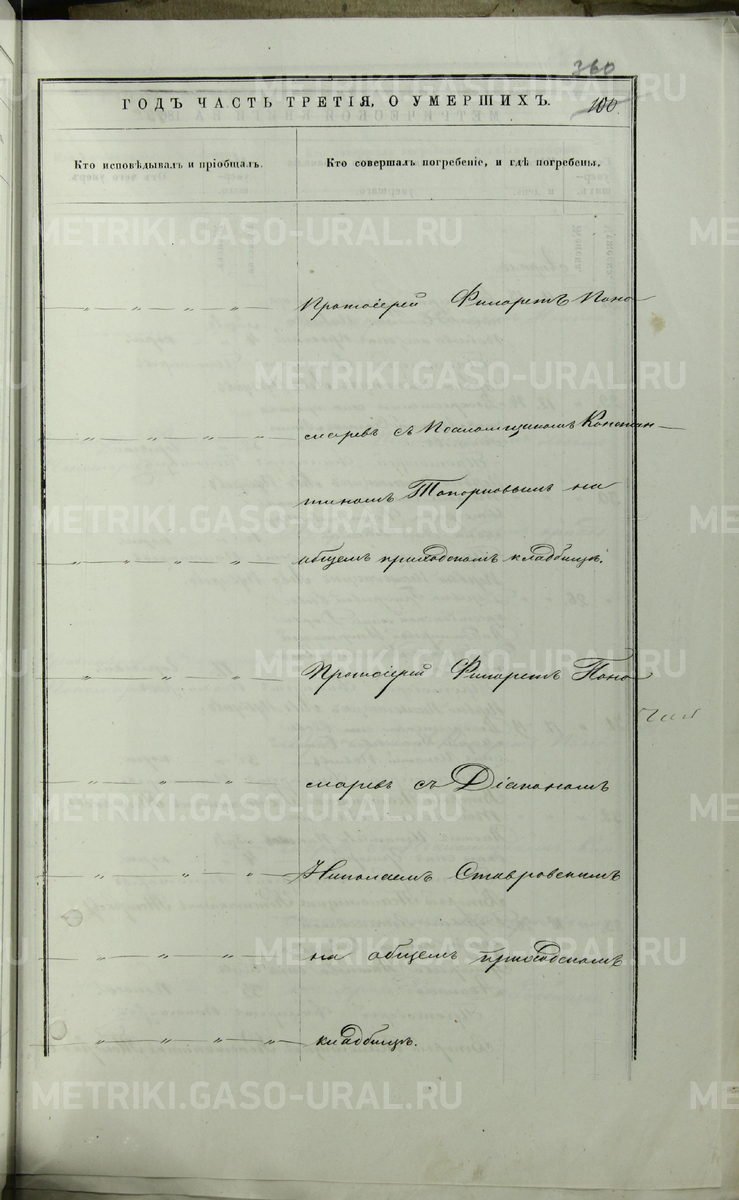 360
ГОДЪ ЧАСТЬ ТРЕТІЯ, О УМЕРШИХЪ. 100
Кто исповѣдывалъ и пріобщалъ.
Кто совершалъ погребеніе, и гдѣ погребены.
Протоіерей Филаретъ Поно
маревъ съ Псаломщикомъ Констан
тиномъ Топорковымъ на
общемъ приходскомъ кладбищѣ.
Протоіерей Филаретъ Поно
маревъ съ Діакономъ
Николаемъ Ставровскимъ
на общемъ приходскомъ
кладбищѣ.
METRIKI.GASO-URAL.RU